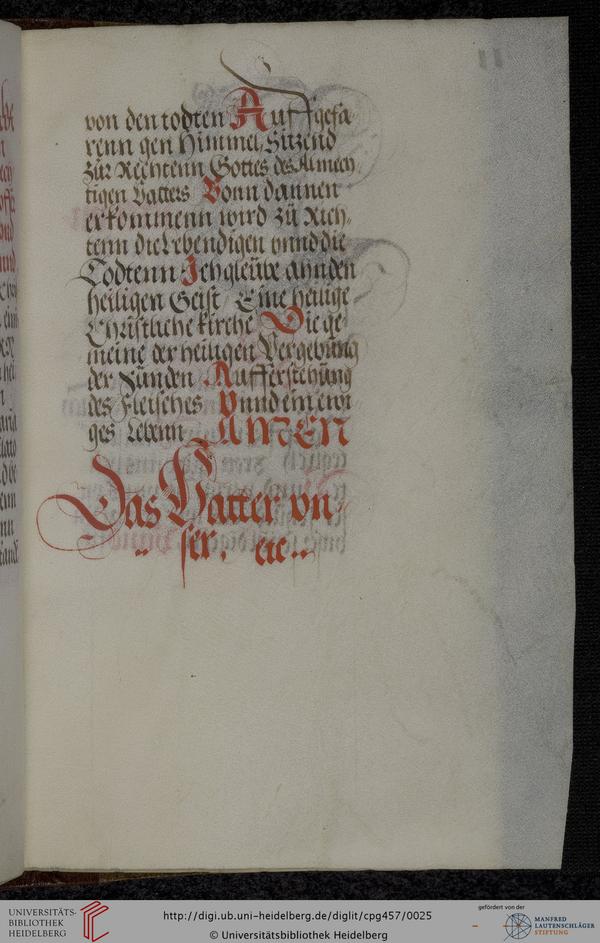 von den todten Auffgefa
renn gen Himmel, Sitzend
zur Rechtenn Gottes des Almech,
tigen Vatters Vonn dannen
er kommenn wird zu Rich,
tenn die Lebendigen vnnd die
Todtenn Ich gleuve ann den
heiligen Geist / Eine heilige
Christliche kirche Die ge
meine der heiligen Vergebung
der Sunden Aufferstehung
des Fleisches Vnnd ein ewi
ges Lebenn AMEN
Das Vatter vn,
ser. etc..
UNIVERSITÄTS-
BIBLIOTHEK
HEIDELBERG
http://digi.ub.uni-heidelberg.de/diglit/cpg457/0025
© Universitätsbibliothek Heidelberg
gefördert von der
MANFRED
LAUTENSCHLÄGER
STIFTUNG